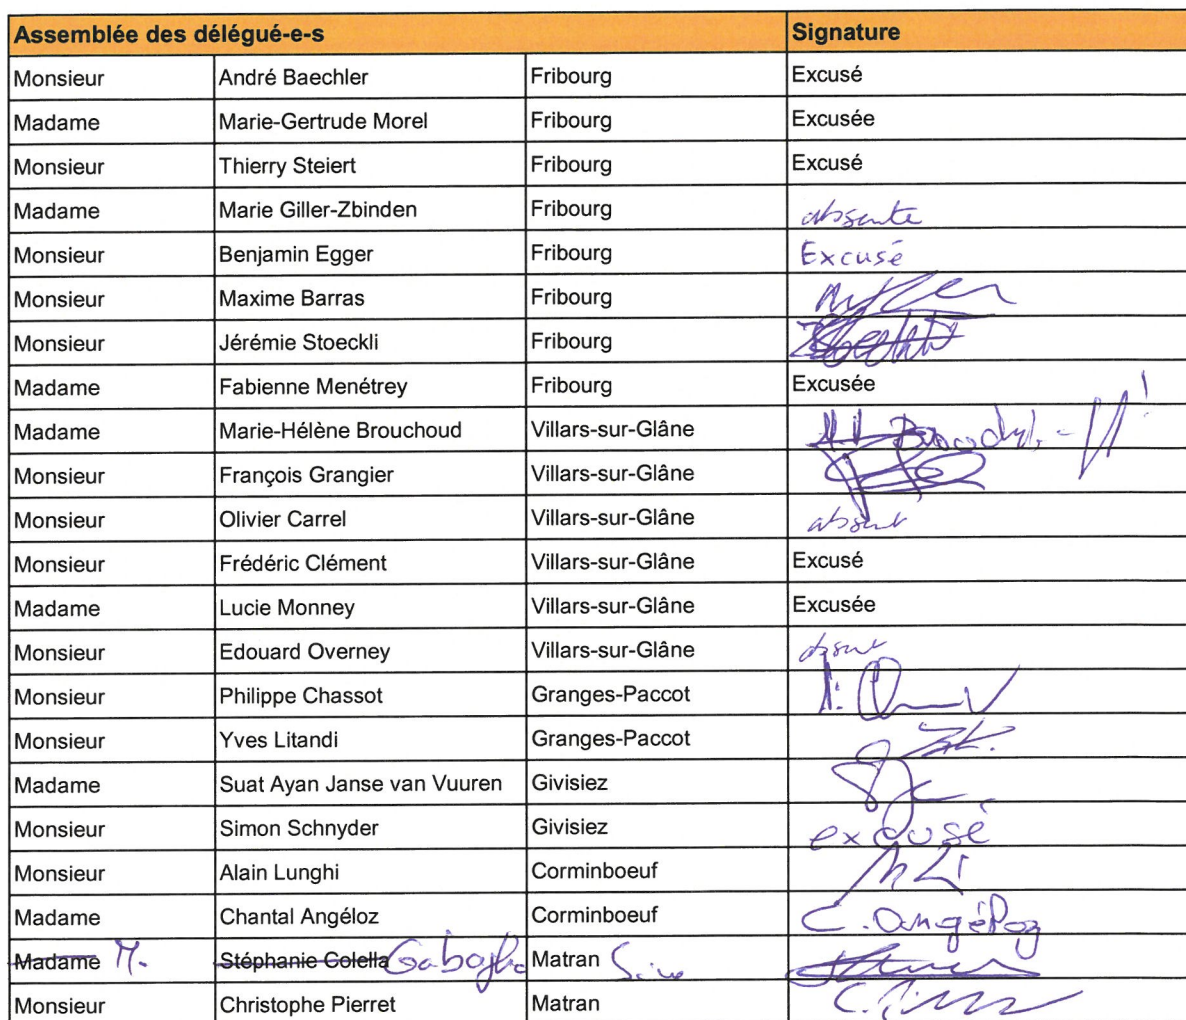 Assemblée des délégué-e-s Signature
Monsieur André Baechler Fribourg Excusé
Madame Marie-Gertrude Morel Fribourg Excusée
Monsieur Thierry Steiert Fribourg Excusé
Madame Marie Giller-Zbinden Fribourg absente
Monsieur Benjamin Egger Fribourg Excusé
Monsieur Maxime Barras Fribourg
Monsieur Jérémie Stoeckli Fribourg
Madame Fabienne Menétrey Fribourg Excusée
Madame Marie-Hélène Brouchoud Villars-sur-Glâne
Monsieur François Grangier Villars-sur-Glâne
Monsieur Olivier Carrel Villars-sur-Glâne absent
Monsieur Frédéric Clément Villars-sur-Glâne Excusé
Madame Lucie Monney Villars-sur-Glâne Excusée
Monsieur Edouard Overney Villars-sur-Glâne absent
Monsieur Philippe Chassot Granges-Paccot
Monsieur Yves Litandi Granges-Paccot
Madame Suat Ayan Janse van Vuuren Givisiez
Monsieur Simon Schnyder Givisiez excusé
Monsieur Alain Lunghi Corminboeuf
Madame Chantal Angéloz Corminboeuf C. Angéloz
Madame M. Stéphanie Colella Matran
Monsieur Christophe Pierret Matran